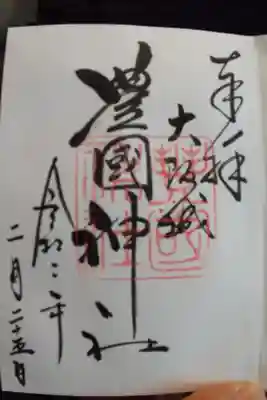 奉拝
大阪城
豊國神社
令和二年
二月二十五日